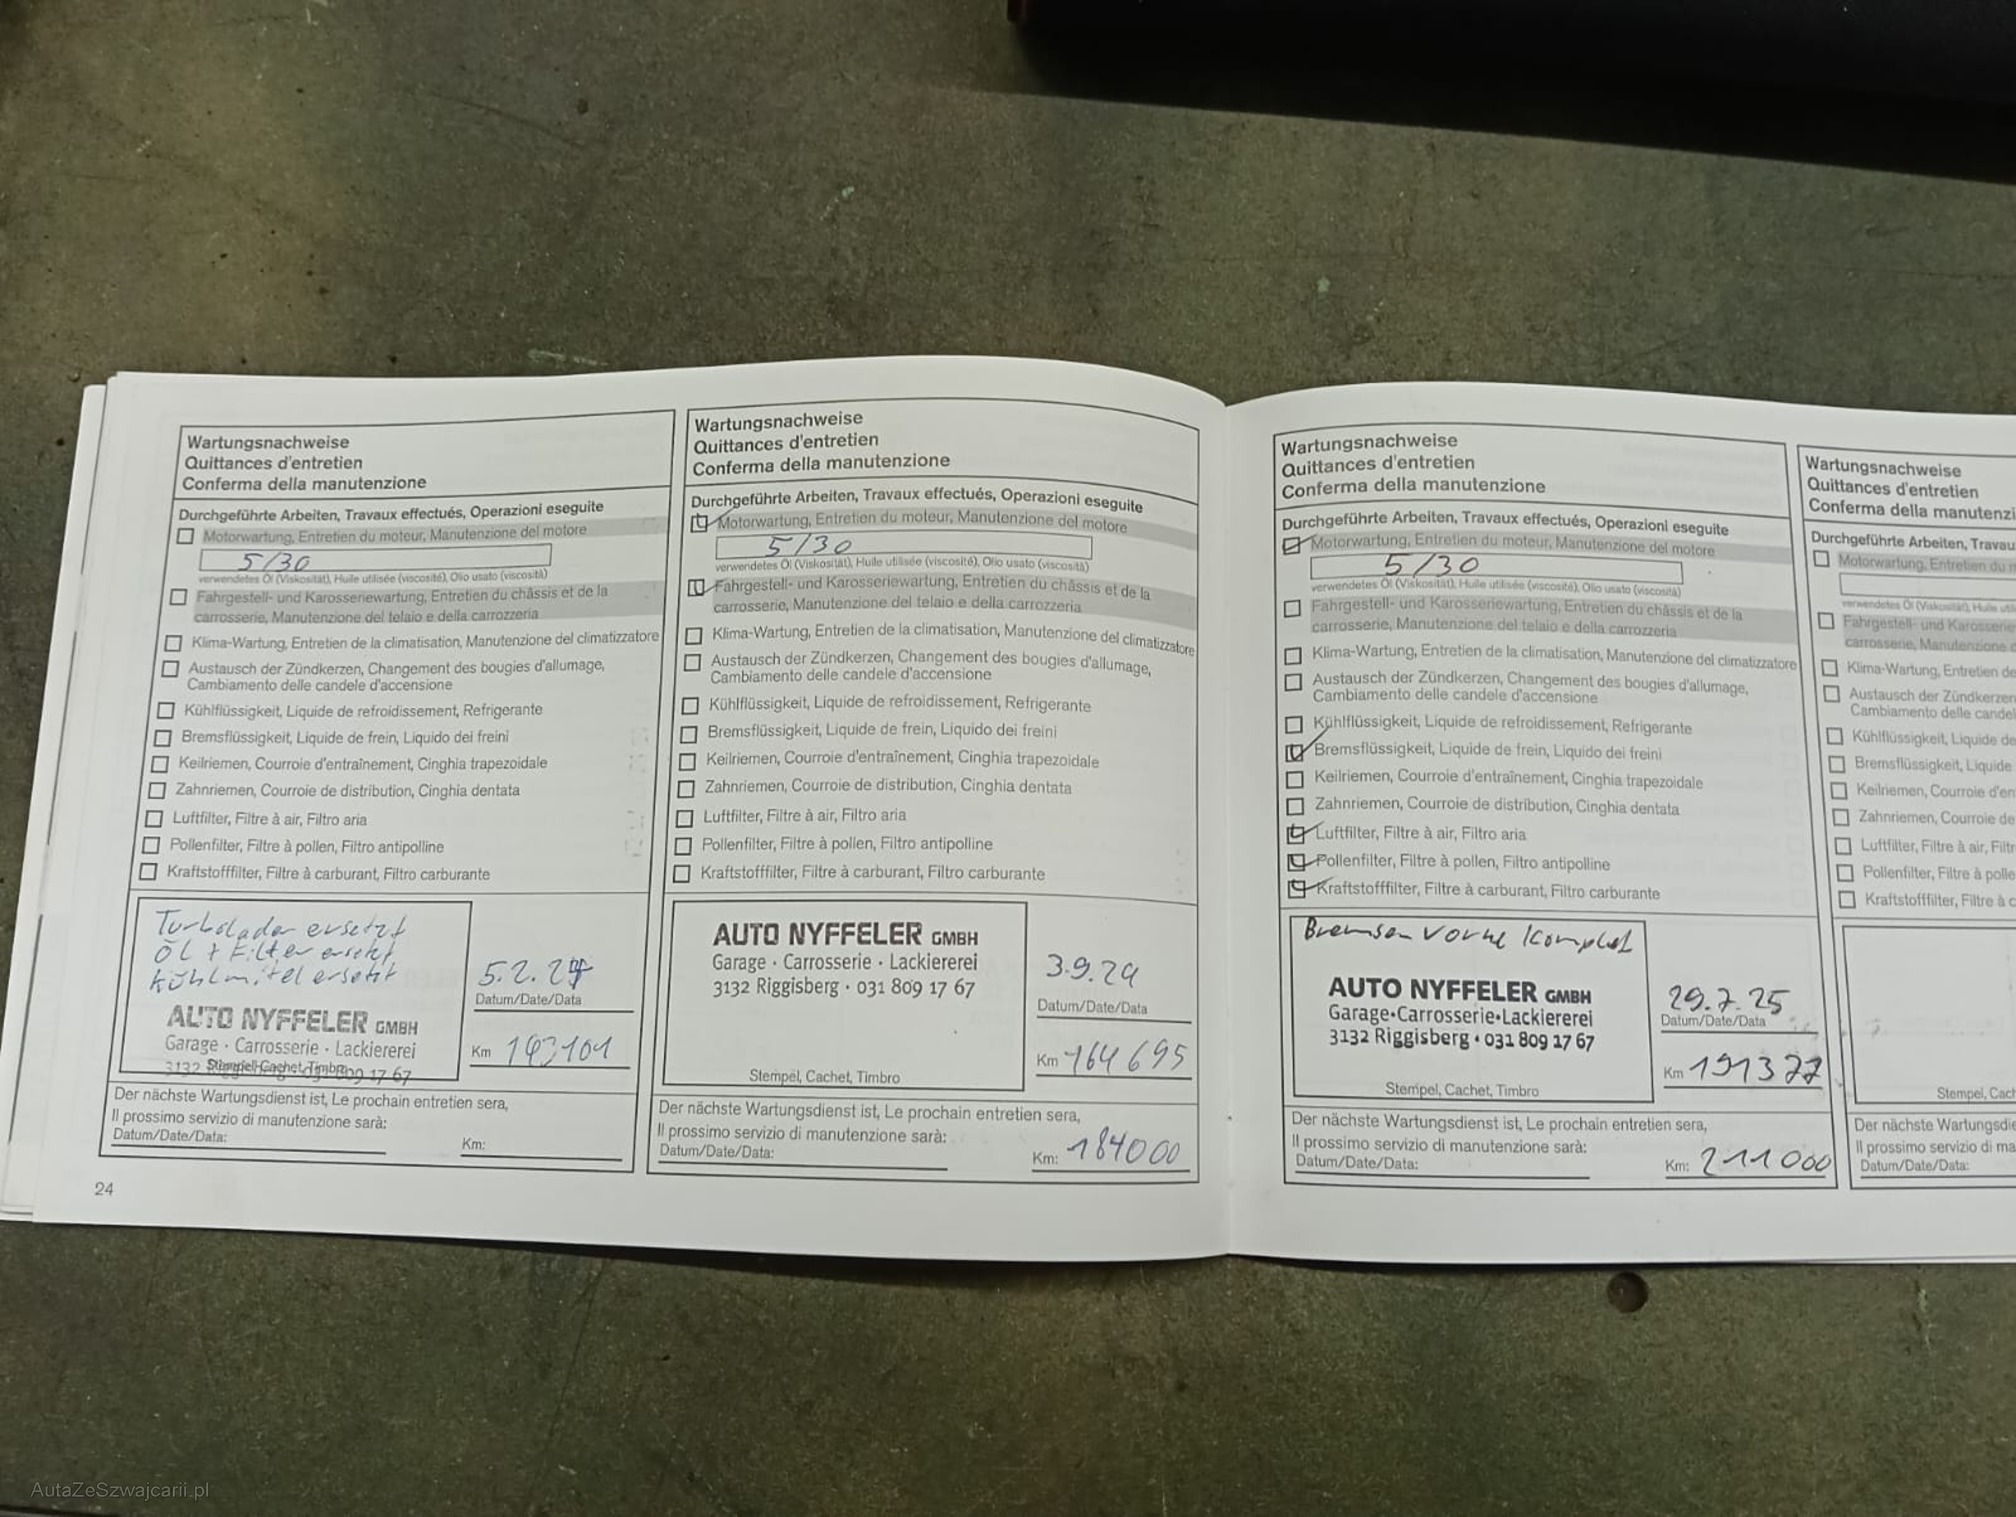 Wartungsnachweise
Quittances d'entretien
Conferma della manutenzione
Durchgeführte Arbeiten, Travaux effectués, Operazioni eseguite
Motorwartung, Entretien du moteur, Manutenzione del motore
5/30
verwendetes Öl (Viskosität), Huile utilisée (viscosité), Olio usato (viscosità)
Fahrgestell- und Karosseriewartung, Entretien du châssis et de la
carrosserie, Manutenzione del telaio e della carrozzeria
Klima-Wartung, Entretien de la climatisation, Manutenzione del climatizzatore
Austausch der Zündkerzen, Changement des bougies d'allumage,
Cambiamento delle candele d'accensione
Kühlflüssigkeit, Liquide de refroidissement, Refrigerante
Bremsflüssigkeit, Liquide de frein, Liquido dei freini
Keilriemen, Courroie d'entraînement, Cinghia trapezoidale
Zahnriemen, Courroie de distribution, Cinghia dentata
Luftfilter, Filtre à air, Filtro aria
Pollenfilter, Filtre à pollen, Filtro antipolline
Kraftstofffilter, Filtre à carburant, Filtro carburante
Turbolader ersetzt
Öl + Filter ersetzt
Kühlmittel ersetzt
AUTO NYFFELER GMBH
Garage · Carrosserie · Lackiererei
3132 Riggisberg · 031 809 17 67
Stempel, Cachet, Timbro
5.2.24
Datum/Date/Data
Km 143101
Der nächste Wartungsdienst ist, Le prochain entretien sera,
Il prossimo servizio di manutenzione sarà:
Datum/Date/Data:
Km:
24
Wartungsnachweise
Quittances d'entretien
Conferma della manutenzione
Durchgeführte Arbeiten, Travaux effectués, Operazioni eseguite
Motorwartung, Entretien du moteur, Manutenzione del motore
5/30
verwendetes Öl (Viskosität), Huile utilisée (viscosité), Olio usato (viscosità)
Fahrgestell- und Karosseriewartung, Entretien du châssis et de la
carrosserie, Manutenzione del telaio e della carrozzeria
Klima-Wartung, Entretien de la climatisation, Manutenzione del climatizzatore
Austausch der Zündkerzen, Changement des bougies d'allumage,
Cambiamento delle candele d'accensione
Kühlflüssigkeit, Liquide de refroidissement, Refrigerante
Bremsflüssigkeit, Liquide de frein, Liquido dei freini
Keilriemen, Courroie d'entraînement, Cinghia trapezoidale
Zahnriemen, Courroie de distribution, Cinghia dentata
Luftfilter, Filtre à air, Filtro aria
Pollenfilter, Filtre à pollen, Filtro antipolline
Kraftstofffilter, Filtre à carburant, Filtro carburante
AUTO NYFFELER GMBH
Garage · Carrosserie · Lackiererei
3132 Riggisberg · 031 809 17 67
Stempel, Cachet, Timbro
3.9.24
Datum/Date/Data
Km 164695
Der nächste Wartungsdienst ist, Le prochain entretien sera,
Il prossimo servizio di manutenzione sarà:
Datum/Date/Data:
Km: 184000
Wartungsnachweise
Quittances d'entretien
Conferma della manutenzione
Durchgeführte Arbeiten, Travaux effectués, Operazioni eseguite
Motorwartung, Entretien du moteur, Manutenzione del motore
5/30
verwendetes Öl (Viskosität), Huile utilisée (viscosité), Olio usato (viscosità)
Fahrgestell- und Karosseriewartung, Entretien du châssis et de la
carrosserie, Manutenzione del telaio e della carrozzeria
Klima-Wartung, Entretien de la climatisation, Manutenzione del climatizzatore
Austausch der Zündkerzen, Changement des bougies d'allumage,
Cambiamento delle candele d'accensione
Kühlflüssigkeit, Liquide de refroidissement, Refrigerante
Bremsflüssigkeit, Liquide de frein, Liquido dei freini
Keilriemen, Courroie d'entraînement, Cinghia trapezoidale
Zahnriemen, Courroie de distribution, Cinghia dentata
Luftfilter, Filtre à air, Filtro aria
Pollenfilter, Filtre à pollen, Filtro antipolline
Kraftstofffilter, Filtre à carburant, Filtro carburante
Bremsen vorne komplet
AUTO NYFFELER GMBH
Garage·Carrosserie·Lackiererei
3132 Riggisberg · 031 809 17 67
Stempel, Cachet, Timbro
29.7.25
Datum/Date/Data
Km 191377
Der nächste Wartungsdienst ist, Le prochain entretien sera,
Il prossimo servizio di manutenzione sarà:
Datum/Date/Data:
Km: 211000
Wartungsnachweise
Quittances d'entretien
Conferma della manutenzi
Durchgeführte Arbeiten, Travau
Motorwartung, Entretien du m
verwendetes Öl (Viskosität), Huile utili
Fahrgestell- und Karosserie
carrosserie, Manutenzione d
Klima-Wartung, Entretien de
Austausch der Zündkerzen
Cambiamento delle candel
Kühlflüssigkeit, Liquide de
Bremsflüssigkeit, Liquide
Keilriemen, Courroie d'en
Zahnriemen, Courroie de
Luftfilter, Filtre à air, Filtr
Pollenfilter, Filtre à polle
Kraftstofffilter, Filtre à c
Stempel, Cach
Der nächste Wartungsdie
Il prossimo servizio di ma
Datum/Date/Data:
AutaZeSzwajcarii.pl